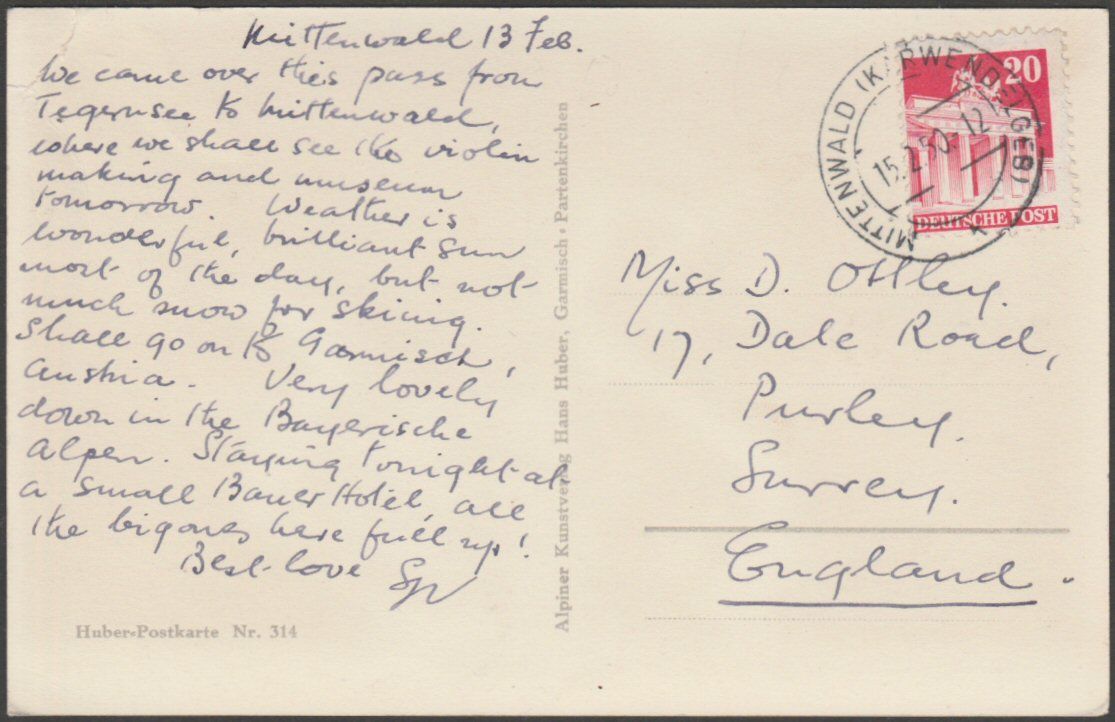 Mittenwald 13 Feb.
We came over this pass from
Tegernsee to Mittenwald,
where we shall see the violin
making and museum
tomorrow. Weather is
wonderful, brilliant sun
most of the day, but not
much snow for skiing.
Shall go on to Garmisch,
Austria. Very lovely
down in the Bayerische
Alpen. Staying tonight at
a small Bauer Hotel, all
the big ones here full up!
Best love
Huber-Postkarte Nr. 314
Alpiner Kunstverlag Hans Huber, Garmisch-Partenkirchen
20
DEUTSCHE POST
MITTENWALD (KARWENDELGEB)
15.2.50-12
Miss D. Ottley.
17, Dale Road,
Purley.
Surrey.
England.